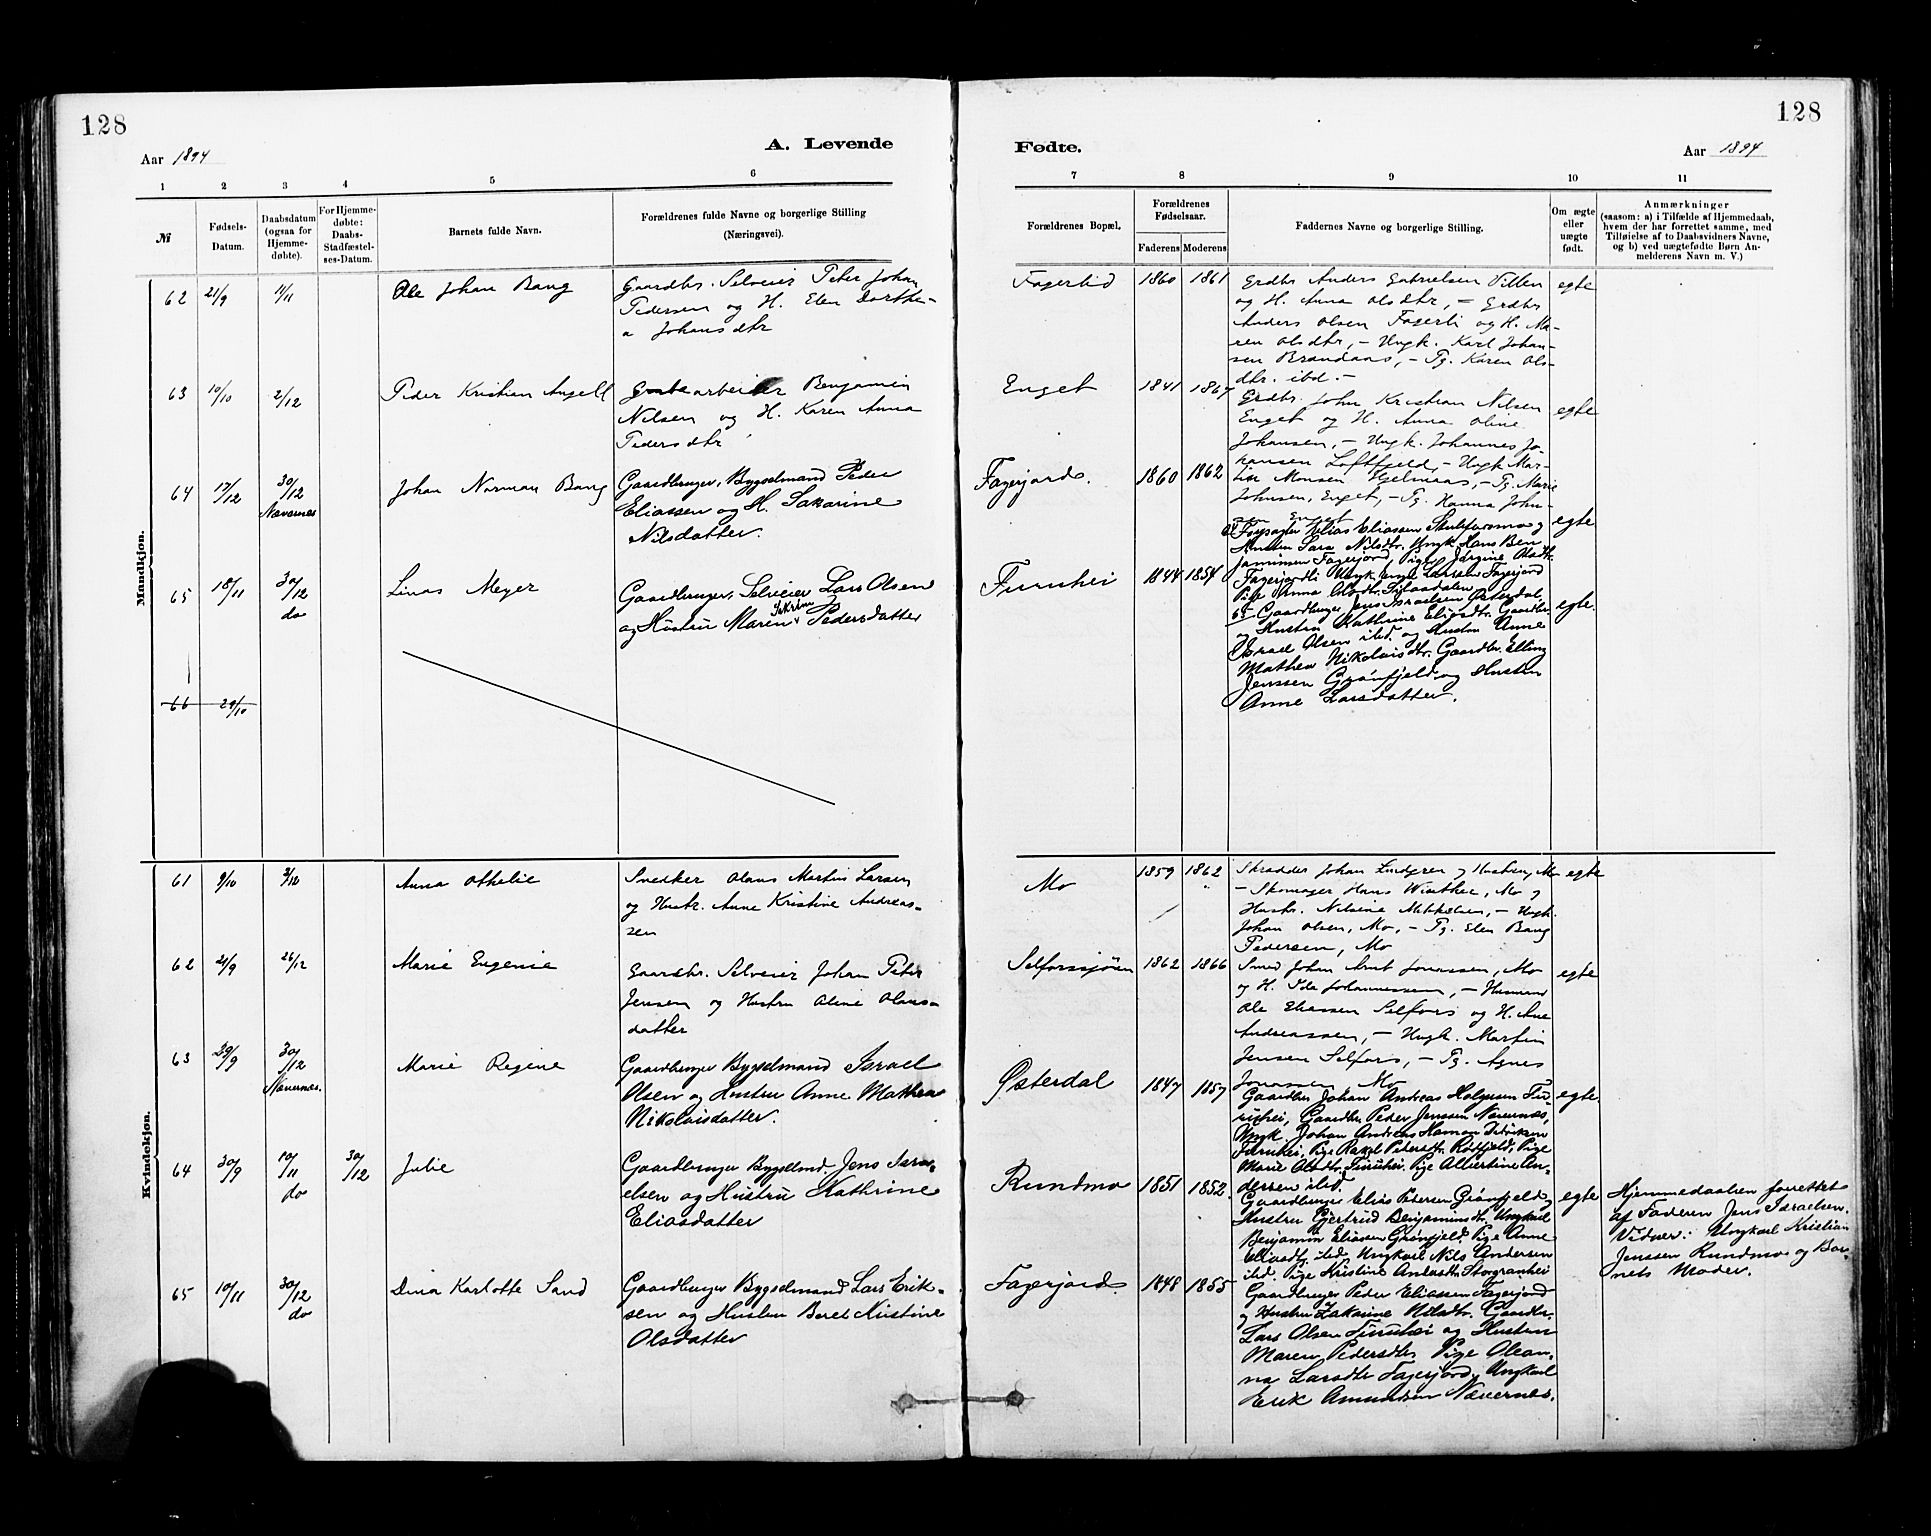 128
128
Aar 1894
A. Levende
Fødte.
Aar 1894
1 2 3 4 5 6
7 8 9 10 11
№
Fødsels-
Datum.
Daabsdatum
(ogsaa for
Hjemme-
døbte).
For Hjemme-
døbte:
Daabs-
Stadfæstel-
ses-Datum.
Barnets fulde Navn.
Forældrenes fulde Navne og borgerlige Stilling
(Næringsvei).
Forældrenes Bopæl.
Forældrenes
Fødselsaar.
Faderens Moderens
Faddernes Navne og borgerlige Stilling.
Om ægte
eller
uægte
født.
Anmærkninger
(saasom: a) i Tilfælde af Hjemmedaab,
hvem der har forrettet samme, med
Tilføielse af to Daabsvidners Navne,
og b) ved uægtefødte Børn An-
melderens Navn m. V.)
Mandkjøn.
62 21/9 11/11 Ole Johan Bang
Gaardbr. Selveier Peter Johan
Pedersen og H. Elen Dorthe-
a Johansdtr
Fagerlid 1860 1861
Grdbr Anders Gabrielsen
og H. Anna Olsdtr, – Grdbr
Anders Olsen Fagerli og H. Ma-
ren Olsdtr, – Ungk. Karl Johan-
sen Brandaas, – Pg. Karen Ols-
dtr. ibd. –
egte
63 10/10 2/12 Peder Kristian Angell
arbeider Benjamin
Nilsen og H. Karen Anna
Pedersdtr
Enget 1841 1867
Grdbr. John Kristian Nilsen
Enget og H. Anna Oline
Johansen, – Ungk. Johannes Jo-
hansen Loftfjeld, – Ungk Mar-
tin Monsen Hjelmaas, – Pg. Marie
Johnsen, Enget, – Pg. Hanna John-
sen Enget
egte
64 17/12 30/12 Nævernes Johan Norman Bang
Gaardbruger, Bygselmand Peder
Eliassen og H. Sakarine
Nilsdatter.
Fagerjord. 1860 1862
Elias Eliassen
Sara Nilsdtr. Ungk Hans Ben
jaminsen Fagerjord, Pige Jørgine Olsdtr.
Fagerjordli Ungk Larssen Fagerjord
Pige Anna Olsdtr.
egte
65 18/11 30/12 do Linas Meyer
Gaardbruger, Selveier Lars Olsen
og Hustru Maren Pedersdatter
Furuhei 1844 1854
65 Gaardbruger Jens Israelsen Østerdal
og Hustru Kathrine Eliasdtr. Gaardbr.
Israel Olsen ibd. og Hustru Anne
Mathea Nikolaisdtr. Gaardbr. Elling
Jenssen Grønfjeld og Hustru
Anne Larsdatter.
egte.
66 29/10
Kvindekjøn.
61 9/10 2/12 Anna Othelie
Snedker Olaus Martin Larsen
og Hustr. Anne Kristine Andreas-
sen
Mo 1859 1862
Skrædder Johan Lindgren og Hustru, Mo
– Skomager Hans Winther, Mo og
Hustr. Nilsine Mikkelsen, – Ungk.
Johan Olsen, Mo, – Pg. Elen Bang
Pedersen, Mo
egte
62 21/9 26/12 Marie Eugenie
Gaardbr. Selveier Johan Peter
Jensen og Hustru Oline Olaus-
datter
Selforssjøen 1862 1866
Smed Johan Arnt Jonassen, Mo
og H. Ida Johannessen, – Husmand
Ole Eliassen Selfors og H. Ane
Andreassen, – Ungk. Martin
Jensen Selfors, – Pg. Agnes
Jonassen, Mo
egte
63 29/9 30/12 Nævernes. Marie Regine
Gaardbruger Bygselmand Israel
Olsen og Hustru Anne Mathea
Nikolaisdatter.
Østerdal 1847 1857
Gaardbr Johan Andreas Holgersen Fu-
ruhei, Gaardbr. Peder Jenssen Nævernes,
Ungk. Johan Andreas Haman Didriksen
Furuhei, Pige Rakel Pedersdtr. Rødfjeld, Pige
Marie Olsdtr. Furuhei, Pige Albertine An-
dersen ibd.
egte.
64 30/9 10/11 do 30/12 Julie
Gaardbruger Bygselmd. Jens Isra-
elsen og Hustru Kathrine
Eliasdatter
Rundmo 1851 1852.
Gaardbruger Elias Pedersen Grønfjeld og
Hustru Gjertrud Benjaminsdtr. Ungkarl
Benjamin Eliassen Grønfjeld. Pige Anne
Eliasdtr. ibd. Ungkarl Nils Andersen
ibd. Pige Kristine Andersdtr. Storgranhei
egte
Hjemmedaaben forrettet
af Faderen Jens Israelsen.
Vidner: Ungkarl Kristian
Jenssen Rundmo og Bar-
nets Moder.
65 10/11 30/12 do Dina Karlotte Sand
Gaardbruger Bygselmand Lars Erik-
sen og Hustru Beret Kristine
Olsdatter
Fagerjord. 1848 1855
Gaardbruger Peder Eliassen Fagerjord
og Hustru Zakarine Nilsdtr. Gaardbr.
Lars Olsen Furuhei og Hustru
Maren Pedersdtr. Pige Olean-
na Larsdtr Fagerjord, Ungkarl
Erik Amundsen Nævernes.